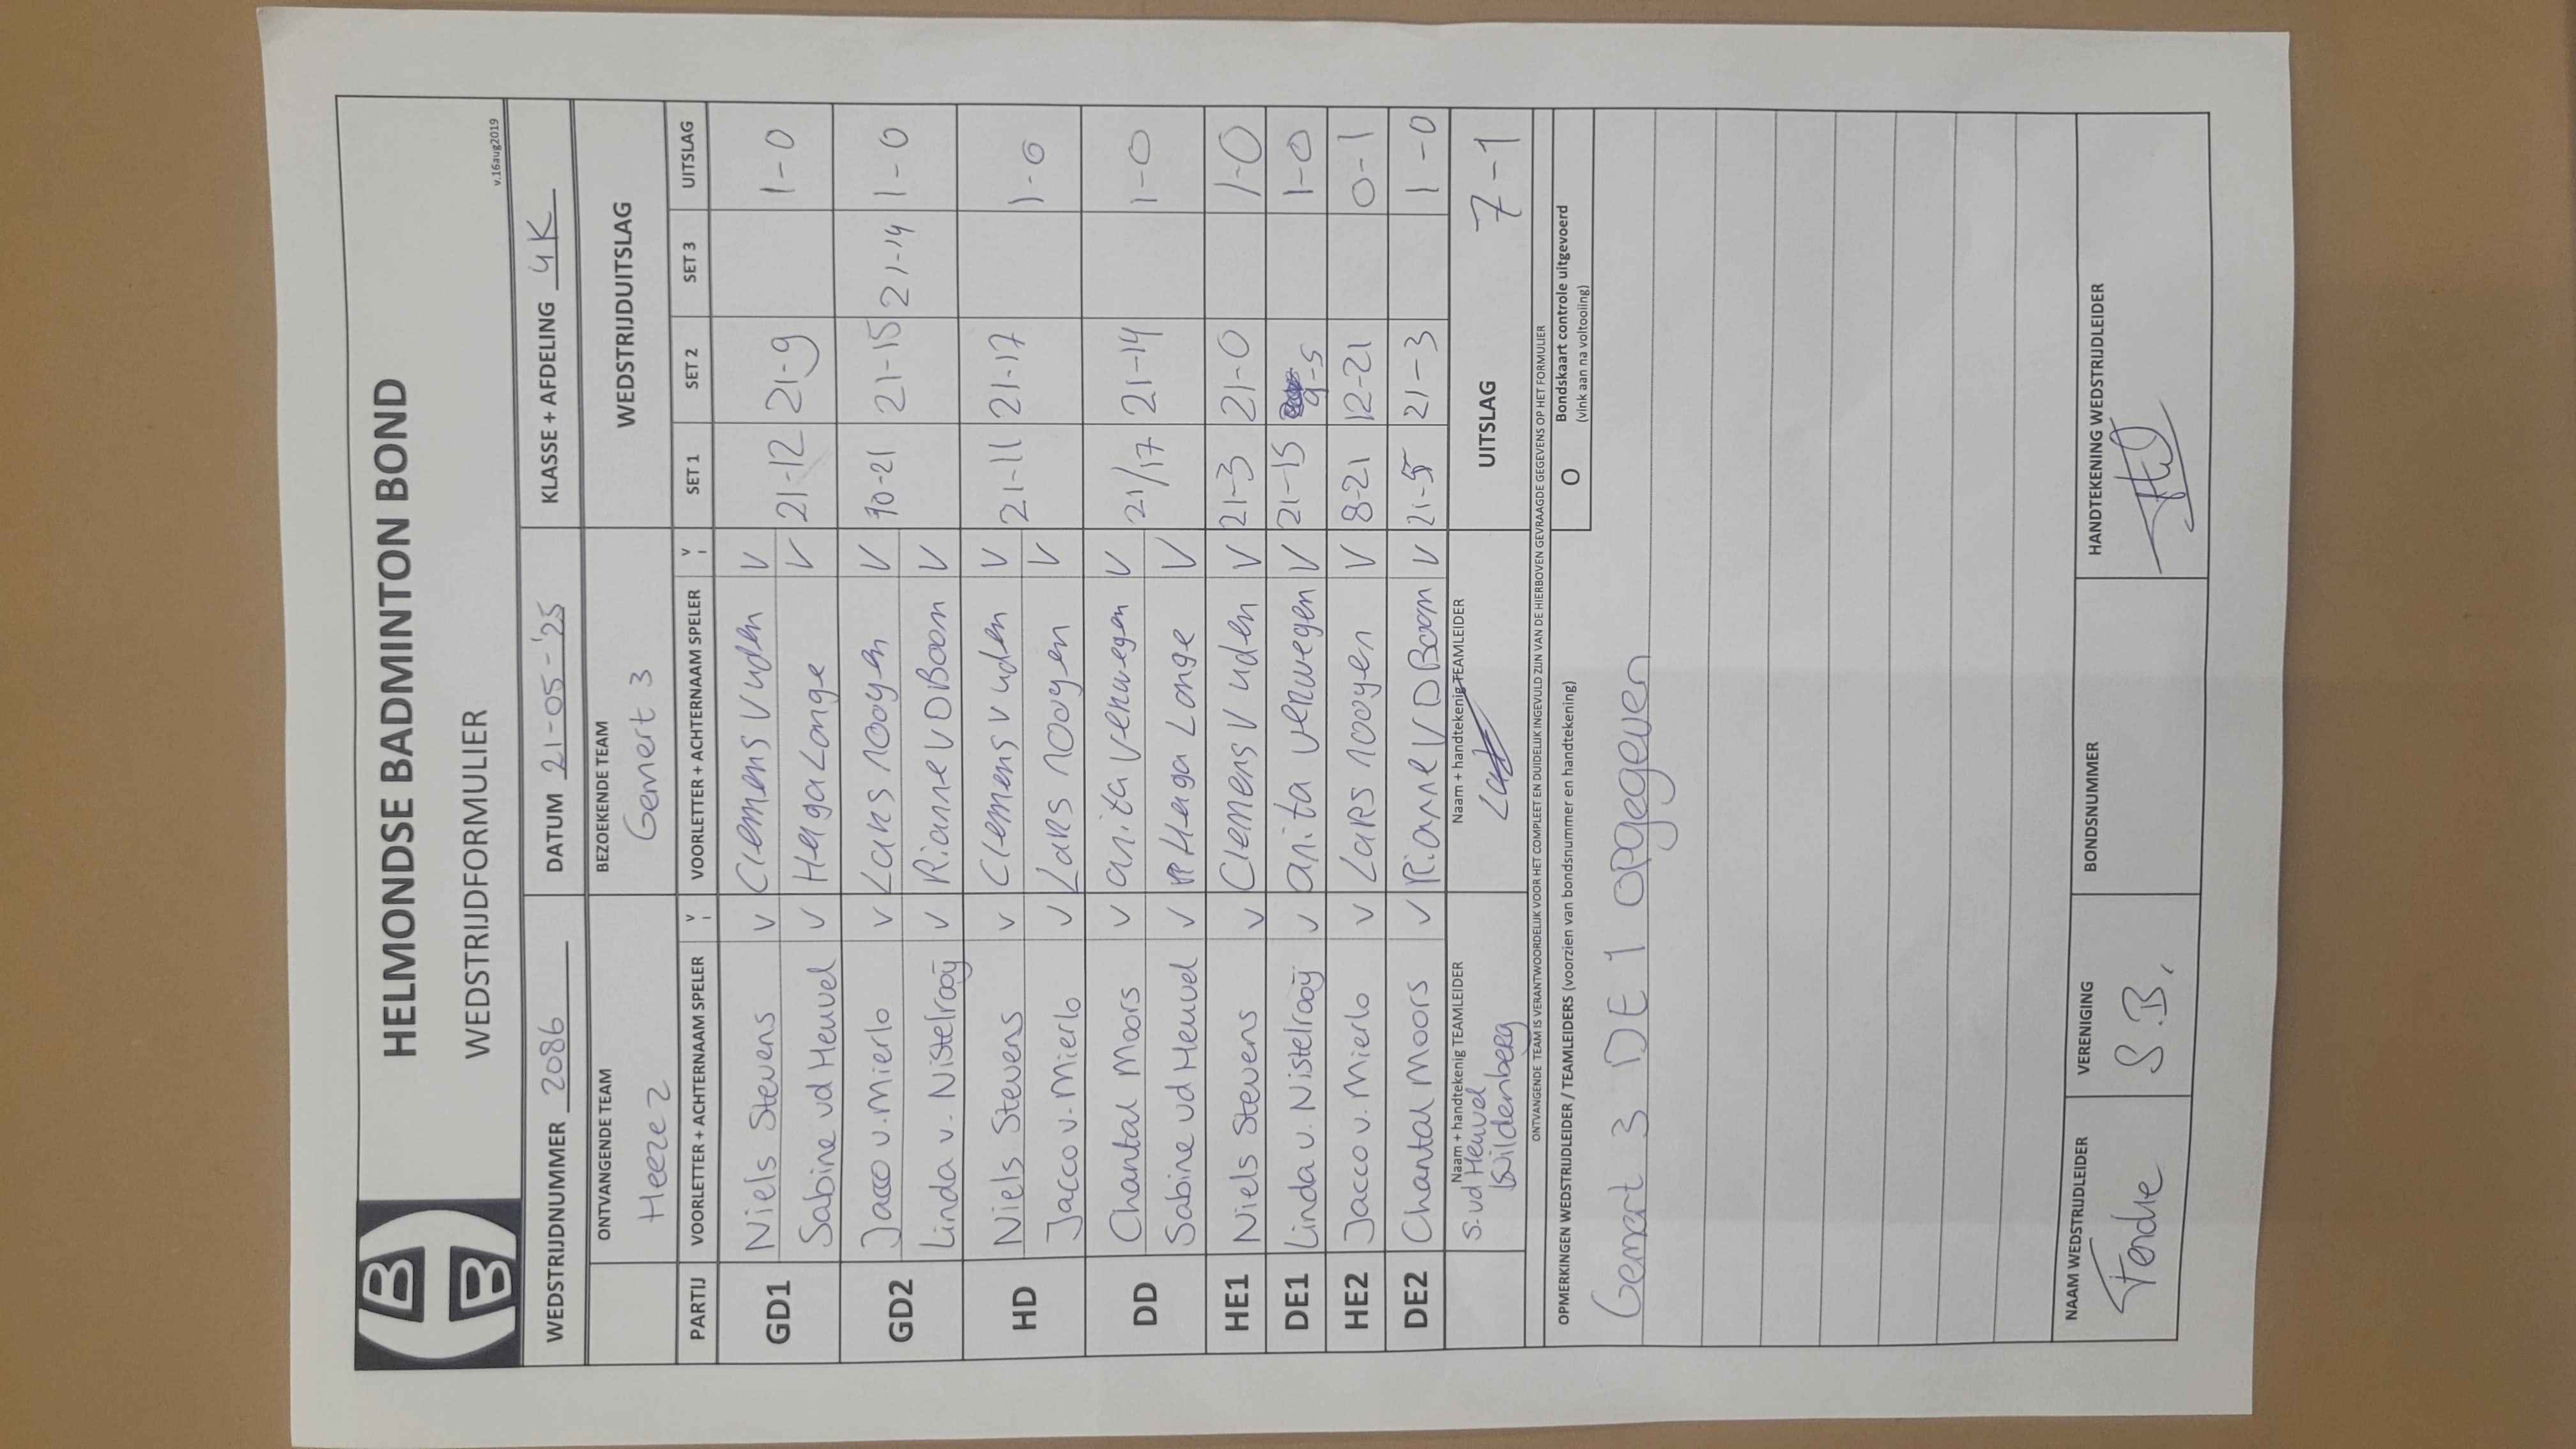 HELMONDSE BADMINTON BOND
WEDSTRIJDFORMULIER
v.16aug2019
WEDSTRIJDNUMMER 2086 DATUM 21-05-'25 KLASSE + AFDELING 4K
ONTVANGENDE TEAM BEZOEKENDE TEAM WEDSTRIJDUITSLAG
Heeze 2 Gemert 3
PARTIJ VOORLETTER + ACHTERNAAM SPELER V VOORLETTER + ACHTERNAAM SPELER V SET 1 SET 2 SET 3 UITSLAG
GD1 Niels Stevens V Clemens V uden V 21-12 21-9 1-0
Sabine vd Heuvel V Helga Lange V
GD2 Jacco v. Mierlo V Lars nooyen V 10-21 21-15 21-14 1-0
Linda v. Nistelrooij V Rianne V D Boom V
HD Niels Stevens V Clemens V uden V 21-11 21-17 1-0
Jacco v. Mierlo V Lars nooyen V
DD Chantal Moors V anita verwegen V 21/17 21-14 1-0
Sabine vd Heuvel V Helga Lange V
HE1 Niels Stevens V Clemens V uden V 21-3 21-0 1-0
DE1 Linda v. Nistelrooij V anita verwegen V 21-15 9-5 1-0
HE2 Jacco v. Mierlo V Lars nooyen V 8-21 12-21 0-1
DE2 Chantal Moors V Rianne V D Boom V 21-5 21-3 1-0
Naam + handtekenig TEAMLEIDER Naam + handtekenig TEAMLEIDER UITSLAG 7-1
S. vd Heuvel
ONTVANGENDE TEAM IS VERANTWOORDELIJK VOOR HET COMPLEET EN DUIDELIJK INGEVULD ZIJN VAN DE HIERBOVEN GEVRAAGDE GEGEVENS OP HET FORMULIER
OPMERKINGEN WEDSTRIJDLEIDER / TEAMLEIDERS (voorzien van bondsnummer en handtekening) O Bondskaart controle uitgevoerd
(vink aan na voltooiing)
Gemert 3 DE 1 opgegeven
NAAM WEDSTRIJDLEIDER VERENIGING BONDSNUMMER HANDTEKENING WEDSTRIJDLEIDER
S.B.